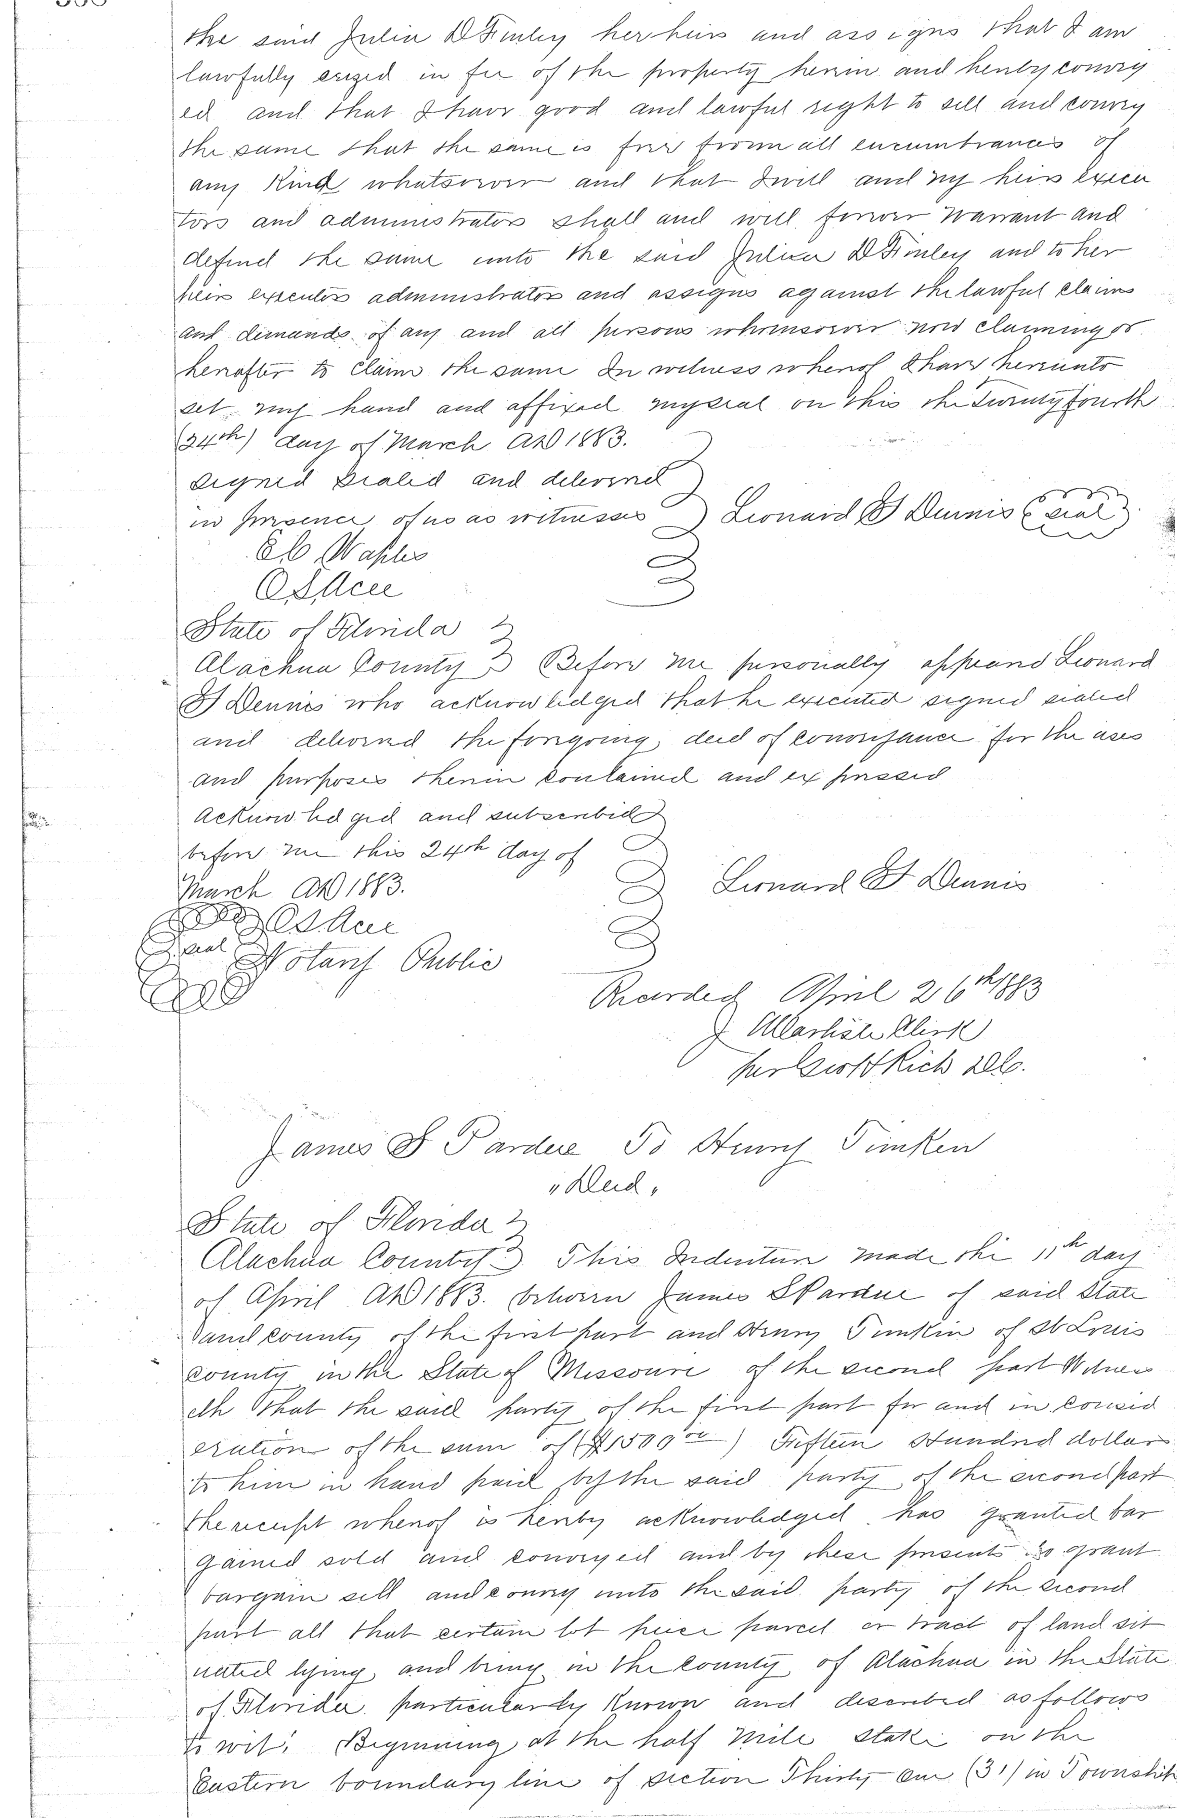 the said Julia D Finley her heirs and assigns that I am
lawfully seized in fee of the property herein and hereby convey
ed and that I have good and lawful right to sell and convey
the same that the same is free from all encumbrances of
any Kind whatsoever and that I will and my heirs execu
tors and administrators shall and will forever warrant and
defend the same unto the said Julia D Finley and to her
heirs executors administrators and assigns against the lawful claims
and demands of any and all persons whomsoever now claiming or
hereafter to claim the same In witness whereof I have hereunto
set my hand and affixed my seal on this the Twenty fourth
(24th) day of March AD 1883.
signed sealed and delivered
in presence of us as witnesses Leonard G Dennis (seal)
State of Florida
Alachua County Before me personally appeared Leonard
G Dennis who acknowledged that he executed signed sealed
and delivered the foregoing deed of conveyance for the uses
and purposes therein contained and expressed
Acknowledged and subscribed
before me this 24th day of
March AD 1883. Leonard G Dennis
seal Notary Public
Recorded April 26th 1883
Clerk
per Rich D.C.
James S Pardee To Henry Timken
"Deed"
State of Florida
Alachua County This Indenture made the 11th day
of April AD 1883. between James S Pardee of said State
and county of the first part and Henry Timkin of St Louis
county in the State of Missouri of the second part Witness
eth That the said party of the first part for and in consid
eration of the sum of ($1500 00) Fifteen Hundred dollars
to him in hand paid by the said party of the second part
the receipt whereof is hereby acknowledged has granted bar
gained sold and conveyed and by these presents do grant
bargain sell and convey unto the said party of the second
part all that certain lot piece parcel or tract of land sit
uated lying and being in the county of Alachua in the State
of Florida particularly Known and described as follows
to wit: Beginning at the half mile stake on the
Eastern boundary line of section Thirty one (31) in Township